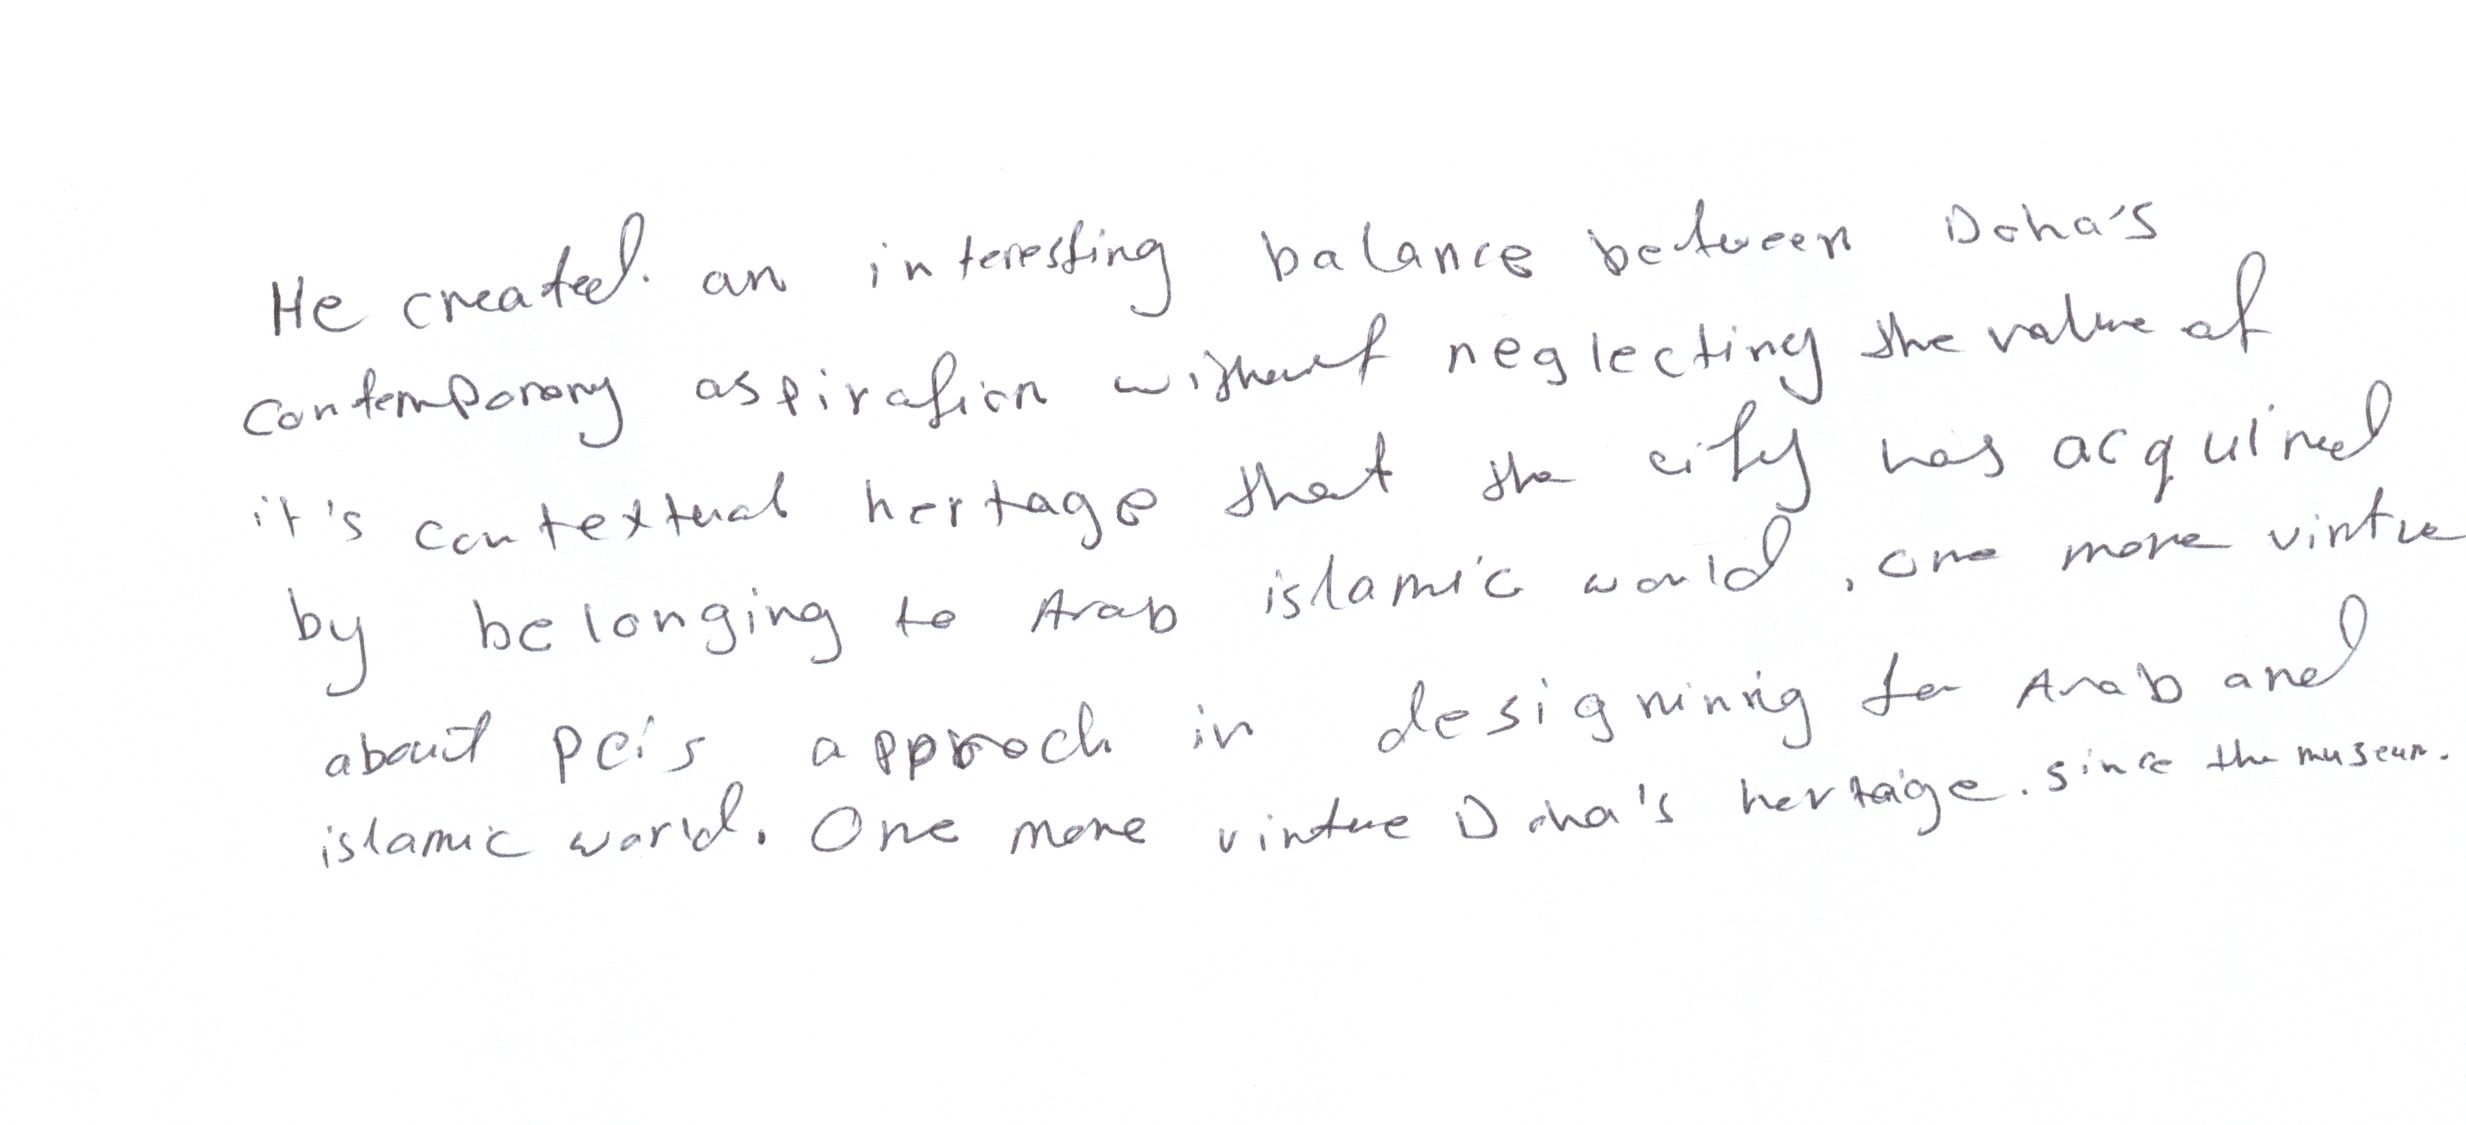 He created an interesting balance between Doha's
contemporary aspiration without neglecting the value of
it's contextual hertage that the city has acquired
by belonging to Arab islamic world, one more virtue
about pei's approch in designing for Arab and
islamic world. One more virtue Doha's hertage. since the museum.